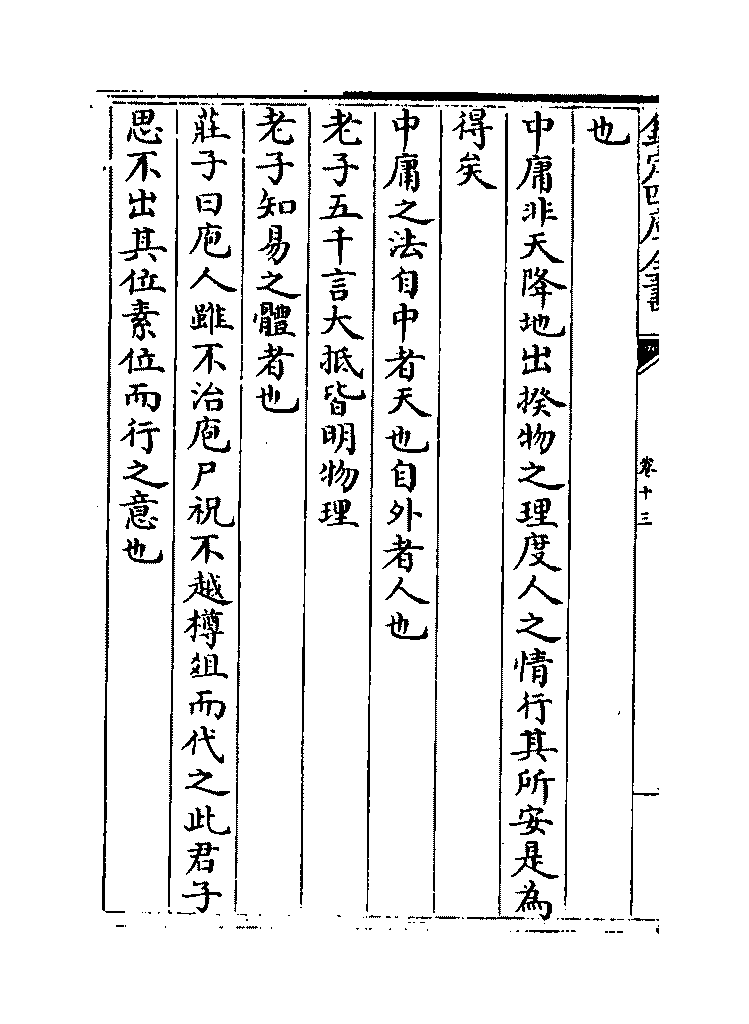 欽定四庫全書
卷十三
也
中庸非天降地出揆物之理度人之情行其所安是為
得矣
中庸之法自中者天也自外者人也
老子五千言大抵皆明物理
老子知易之體者也
莊子曰庖人雖不治庖尸祝不越樽俎而代之此君子
思不出其位素位而行之意也